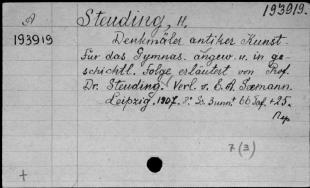 193919.
A Steuding, H.
193919 Denkmäler antiker Kunst.
Für das Gymnas. ausgew. u. in ge-
schichtl. Folge erläutert von Prof.
Dr. Steuding. Verl. v. E. A. Seemann.
Leipzig. 1907. 66 Taf. + 25.
7 (3)
+